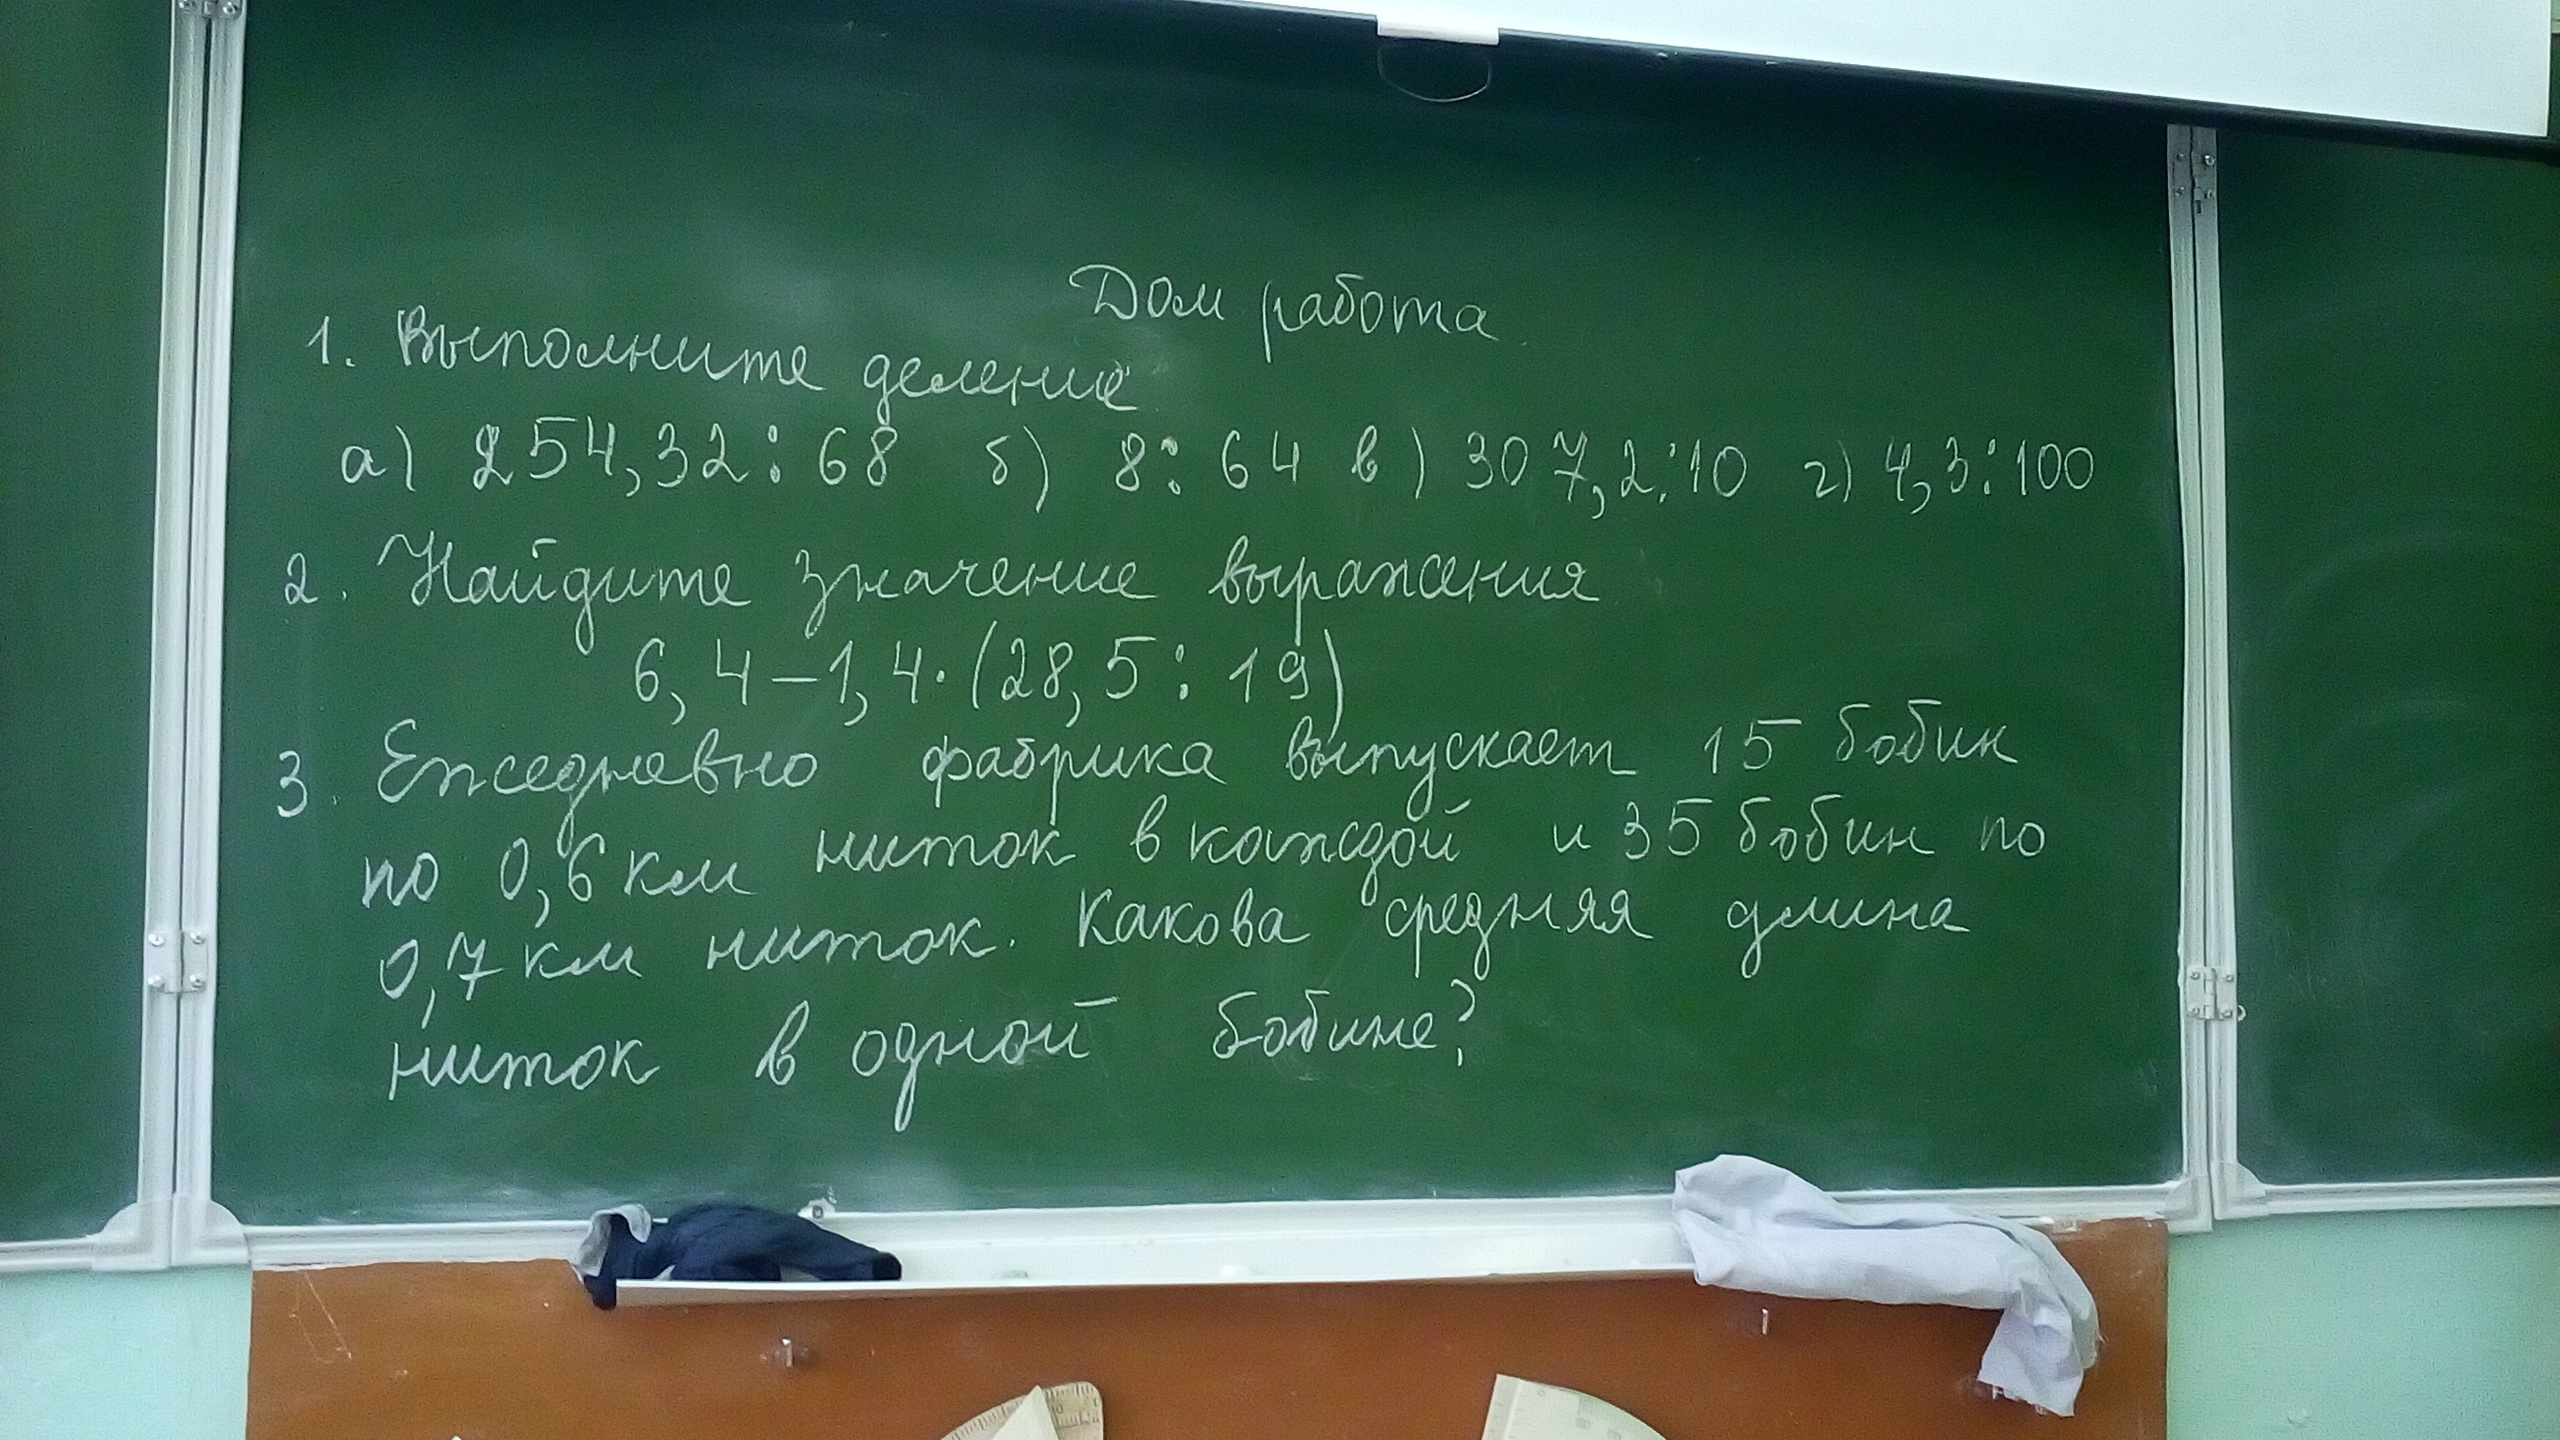 Дом работа
1. Выполните деление
а) 254,32:68 б) 8:64 в) 307,2:10 г) 4,3:100
2. Найдите значение выражения
6,4-1,4·(28,5:19)
3. Ежедневно фабрика выпускает 15 бобин
по 0,6 км ниток в каждой и 35 бобин по
0,7 км ниток. Какова средняя длина
ниток в одной бобине?